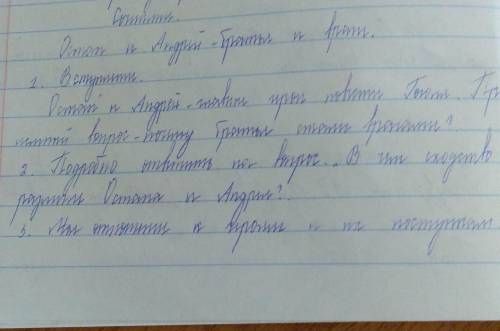 Остап и Андрий - братья и враги.
1. Вступление.
Остап и Андрий - главные герои повести Гоголя.
вопрос - почему братья стали врагами?
2. Подробно ответить на вопрос. В чём сходство
Остапа и Андрия?
3. Моё отношение к героям и их поступкам.